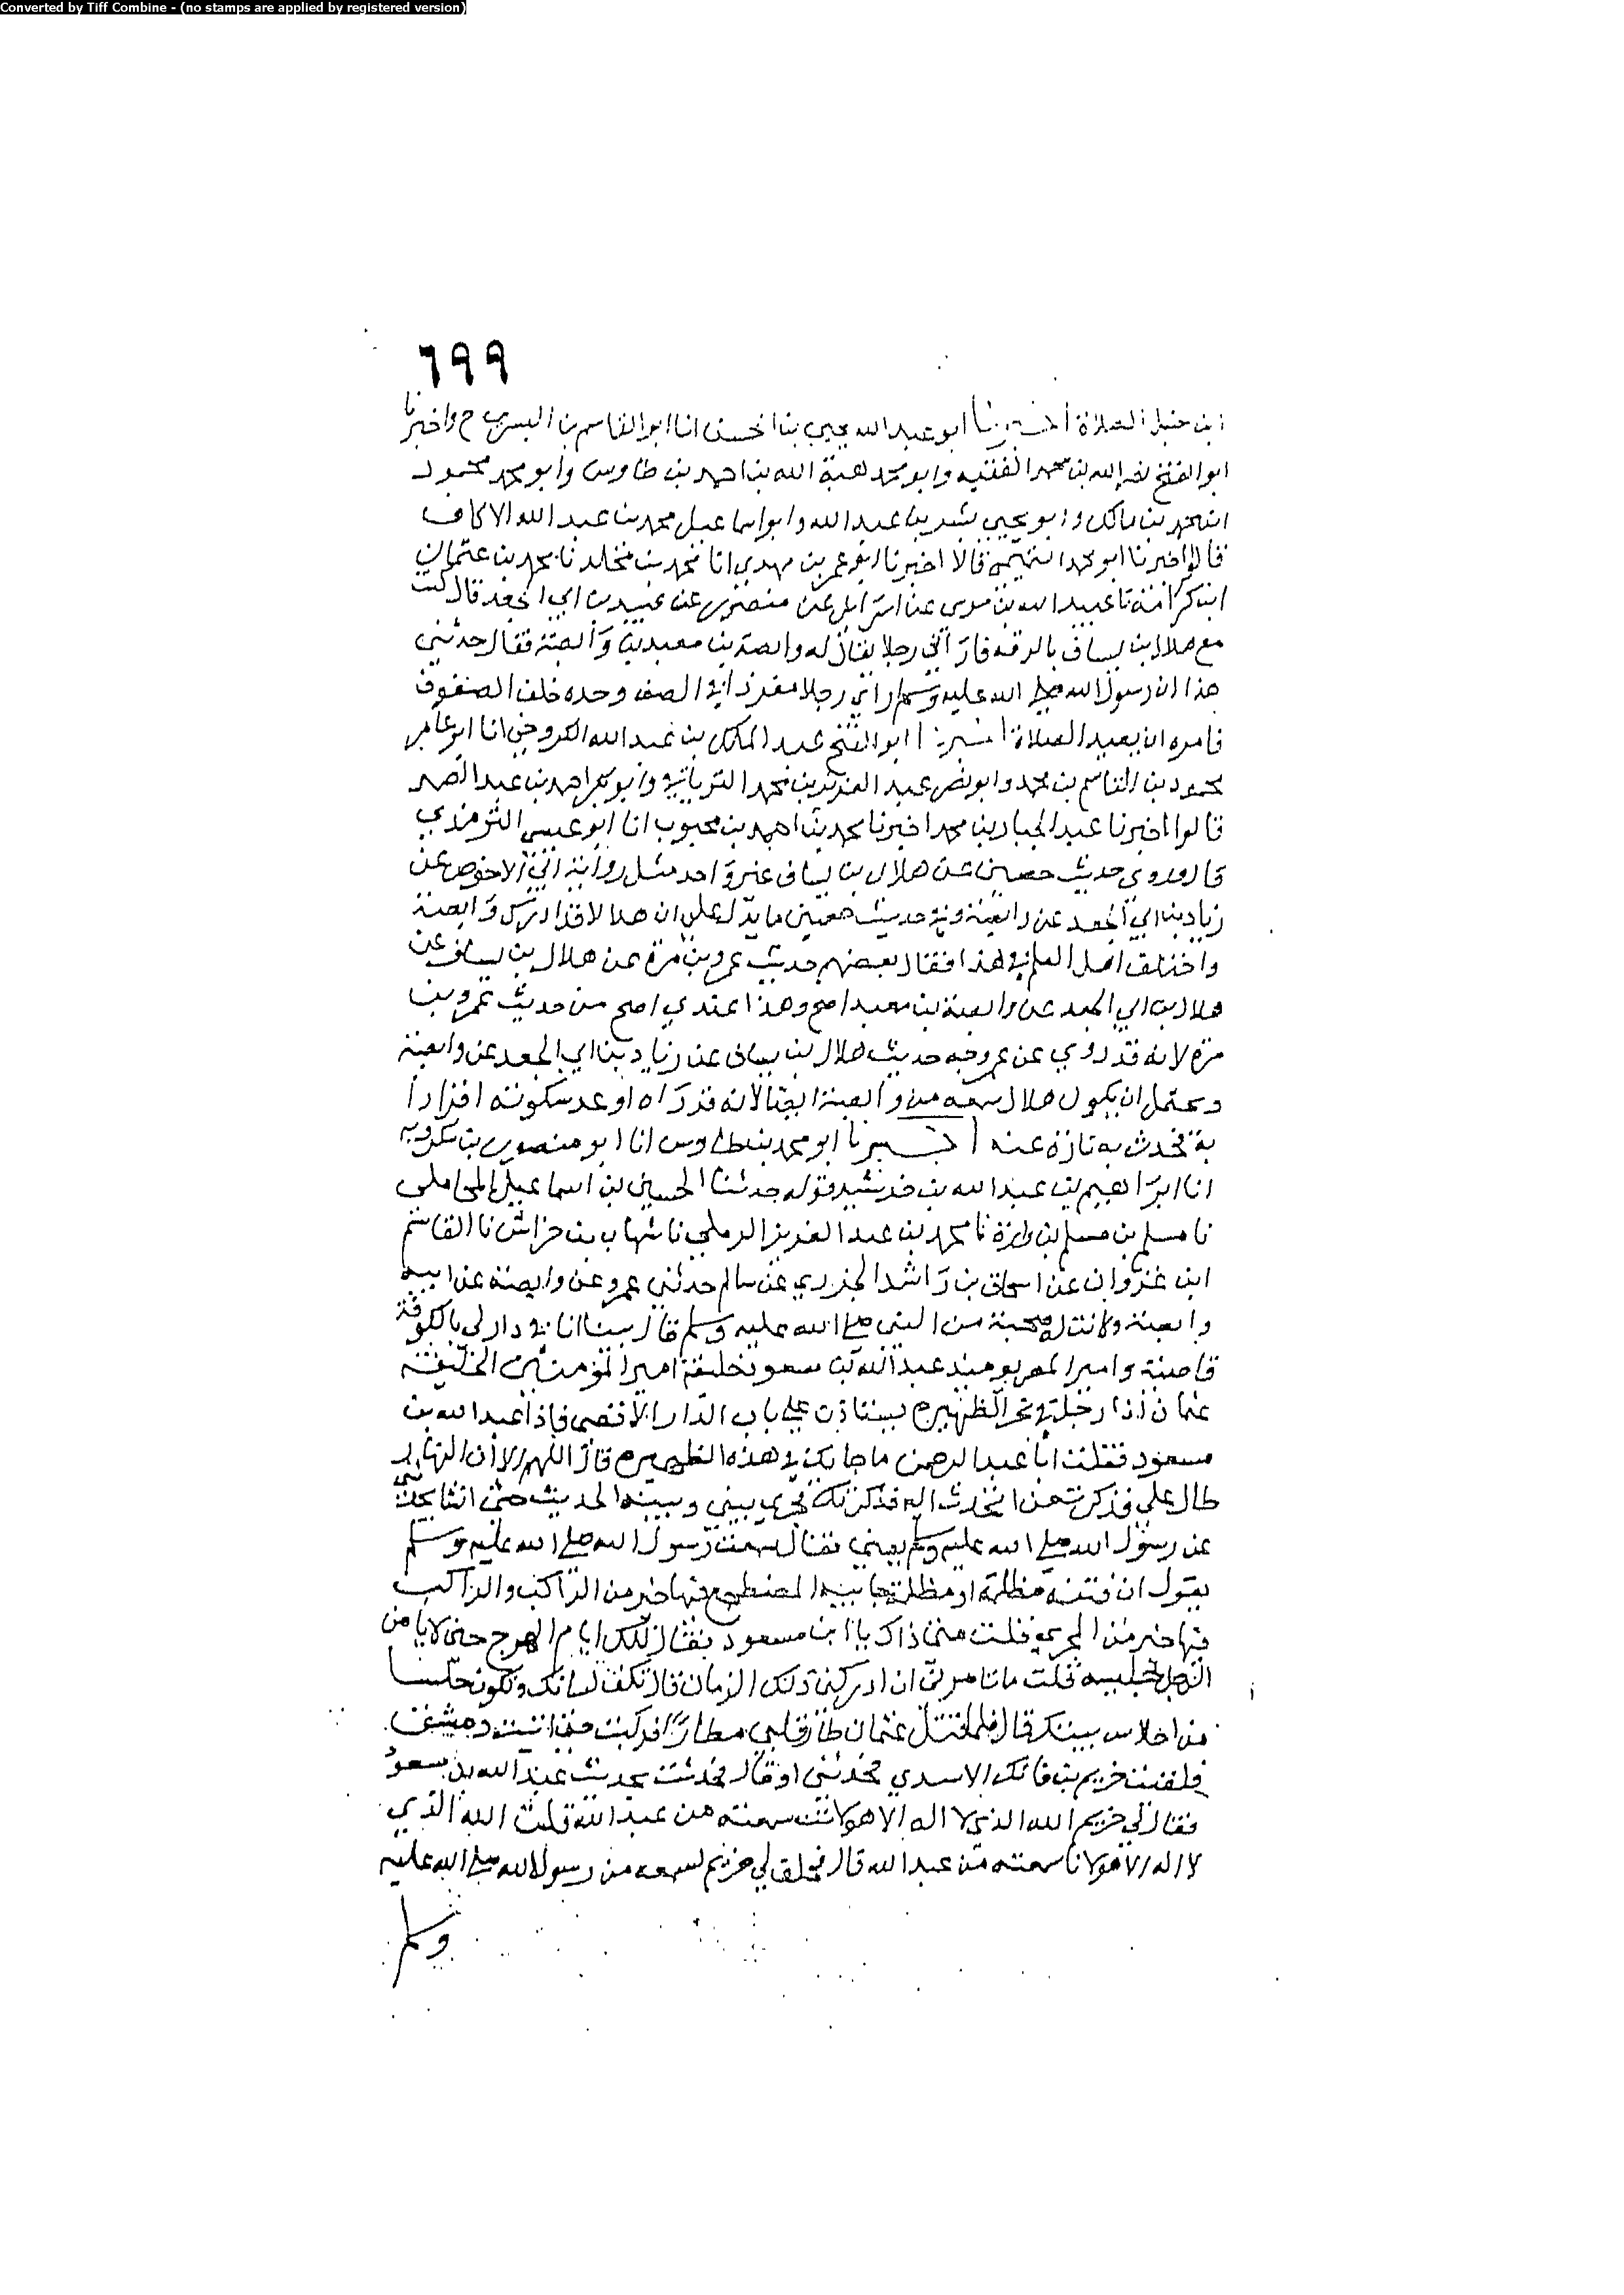 Converted by Tiff Combine - (no stamps are applied by registered version)
٦٩٩
ابن حنبل الصلاة اخبرنا ابو عبد الله يحيى بن الحسن انا ابو القاسم بن البسري ح واخبرنا
ابو الفتح نصر الله بن محمد الفقيه وابو محمد هبة الله بن احمد بن طاوس وابو محمد محمود
ابن محمد بن مالك وابو يحيى بشير بن عبد الله وابو اسماعيل محمد بن عبد الله الاكاف
قالوا اخبرنا ابو محمد التميمي قالا اخبرنا ابو عمر بن مهدي انا محمد بن مخلد نا محمد بن عثمان
ابن كرامة نا عبيد الله بن موسى عن اسرائيل عن منصور عن عبيد بن ابي الجعد قال كنت
مع هلال بن يساف بالرقة فاراني رجلا يقال له وابصة بن معبد فقال حدثني
هذا ان رسول الله صلى الله عليه وسلم راى رجلا مفردا في الصف وحده خلف الصفوف
فامره ان يعيد الصلاة اخبرنا ابو الفتح عبد الملك بن عبد الله الكروخي انا ابو عامر
محمود بن القاسم بن محمد وابو نصر عبد العزيز بن محمد الترياقي وابو بكر احمد بن عبد الصمد
قالوا اخبرنا عبد الجبار بن محمد اخبرنا محمد بن احمد بن محبوب انا ابو عيسى الترمذي
قال وروى حديث حصين عن هلال بن يساف غير واحد مثل رواية ابي الاحوص عن
زياد بن ابي الجعد عن وابصة وفي حديث حصين ما يدل على ان هلالا قد ادرك وابصة
واختلف اهل العلم في هذا فقال بعضهم حديث عمرو بن مرة عن هلال بن يساف عن
هلال بن ابي الجعد عن وابصة بن معبد اصح وهذا عندي اصح من حديث عمرو بن
مرة لانه قد روي عن غير وجه حديث هلال بن يساف عن زياد بن ابي الجعد عن وابصة
ويحتمل ان يكون هلال سمعه من وابصة ايضا لانه قد راه او عد سكوته اقرارا
به فحدث به تارة عنه اخبرنا ابو محمد بن طاوس انا ابو منصور بن شكرويه
انا ابراهيم بن عبد الله بن خرشيد قوله حدثنا الحسين بن اسماعيل المحاملي
نا مسلم بن مسلم بن وارة نا محمد بن عبد العزيز الرملي نا شهاب بن خراش نا القاسم
ابن غزوان عن اسحاق بن راشد الجزري عن سالم حدثني عمرو عن وابصة عن ابيه
وابصة وكانت له صحبة من النبي صلى الله عليه وسلم قال بينا انا في دار لي بالكوفة
قاصية وامير المصر يومئذ عبد الله بن مسعود خليفة امير المؤمنين الخليفة
عثمان اذا رجل في نحر الظهيرة يستاذن على باب الدار الاقصى فاذا عبد الله بن
مسعود فقلت ابا عبد الرحمن ما جا بك في هذه الظهيرة قال اللهم الا ان النهار
طال علي فذكرت من اتحدث اليه فذكرتك فجرى بيني وبينه الحديث حتى انشا يحدثني
عن رسول الله صلى الله عليه وسلم يعني فقال سمعت رسول الله صلى الله عليه وسلم
يقول ان فتنة مظلمة او مظلمة المضطجع فيها خير من الراكب والراكب
فيها خير من المجري قلت متى ذاك يا ابن مسعود فقال تلك ايام الهرج حتى لا يامن
الرجل جليسه قلت ما تامرني ان ادركني ذلك الزمان قال تكف لسانك وتكون حلسا
من احلاس بيتك قال فلما قتل عثمان طار قلبي مطارا فركبت حتى اتيت دمشق
فلقيت خريم بن فاتك الاسدي فحدثني او قال فحدثت بحديث عبد الله بن مسعود
فقال لي خريم الله الذي لا اله الا هو لانت سمعته من عبد الله قلت الله الذي
لا اله الا هو لانا سمعته من عبد الله قال فحلف لي خريم لسمعه من رسول الله صلى الله عليه
وسلم